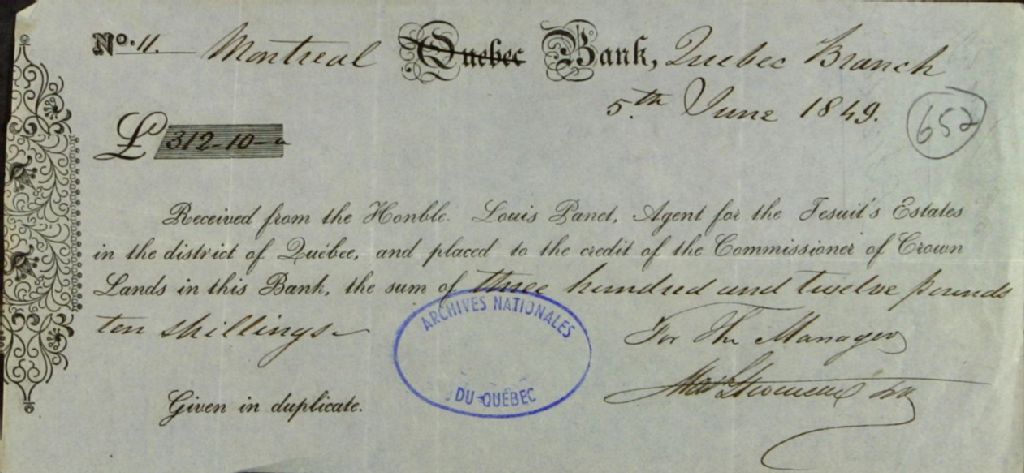 No. 11. Montreal Quebec Bank, Quebec Branch
5th June 1849.
652
£ 312-10-
Received from the Honble. Louis Panet, Agent for the Jesuit's Estates
in the district of Quebec, and placed to the credit of the Commissioner of Crown
Lands in this Bank, the sum of three hundred and twelve pounds
ten shillings
For The Manager
ARCHIVES NATIONALES
DU QUÉBEC
Given in duplicate.